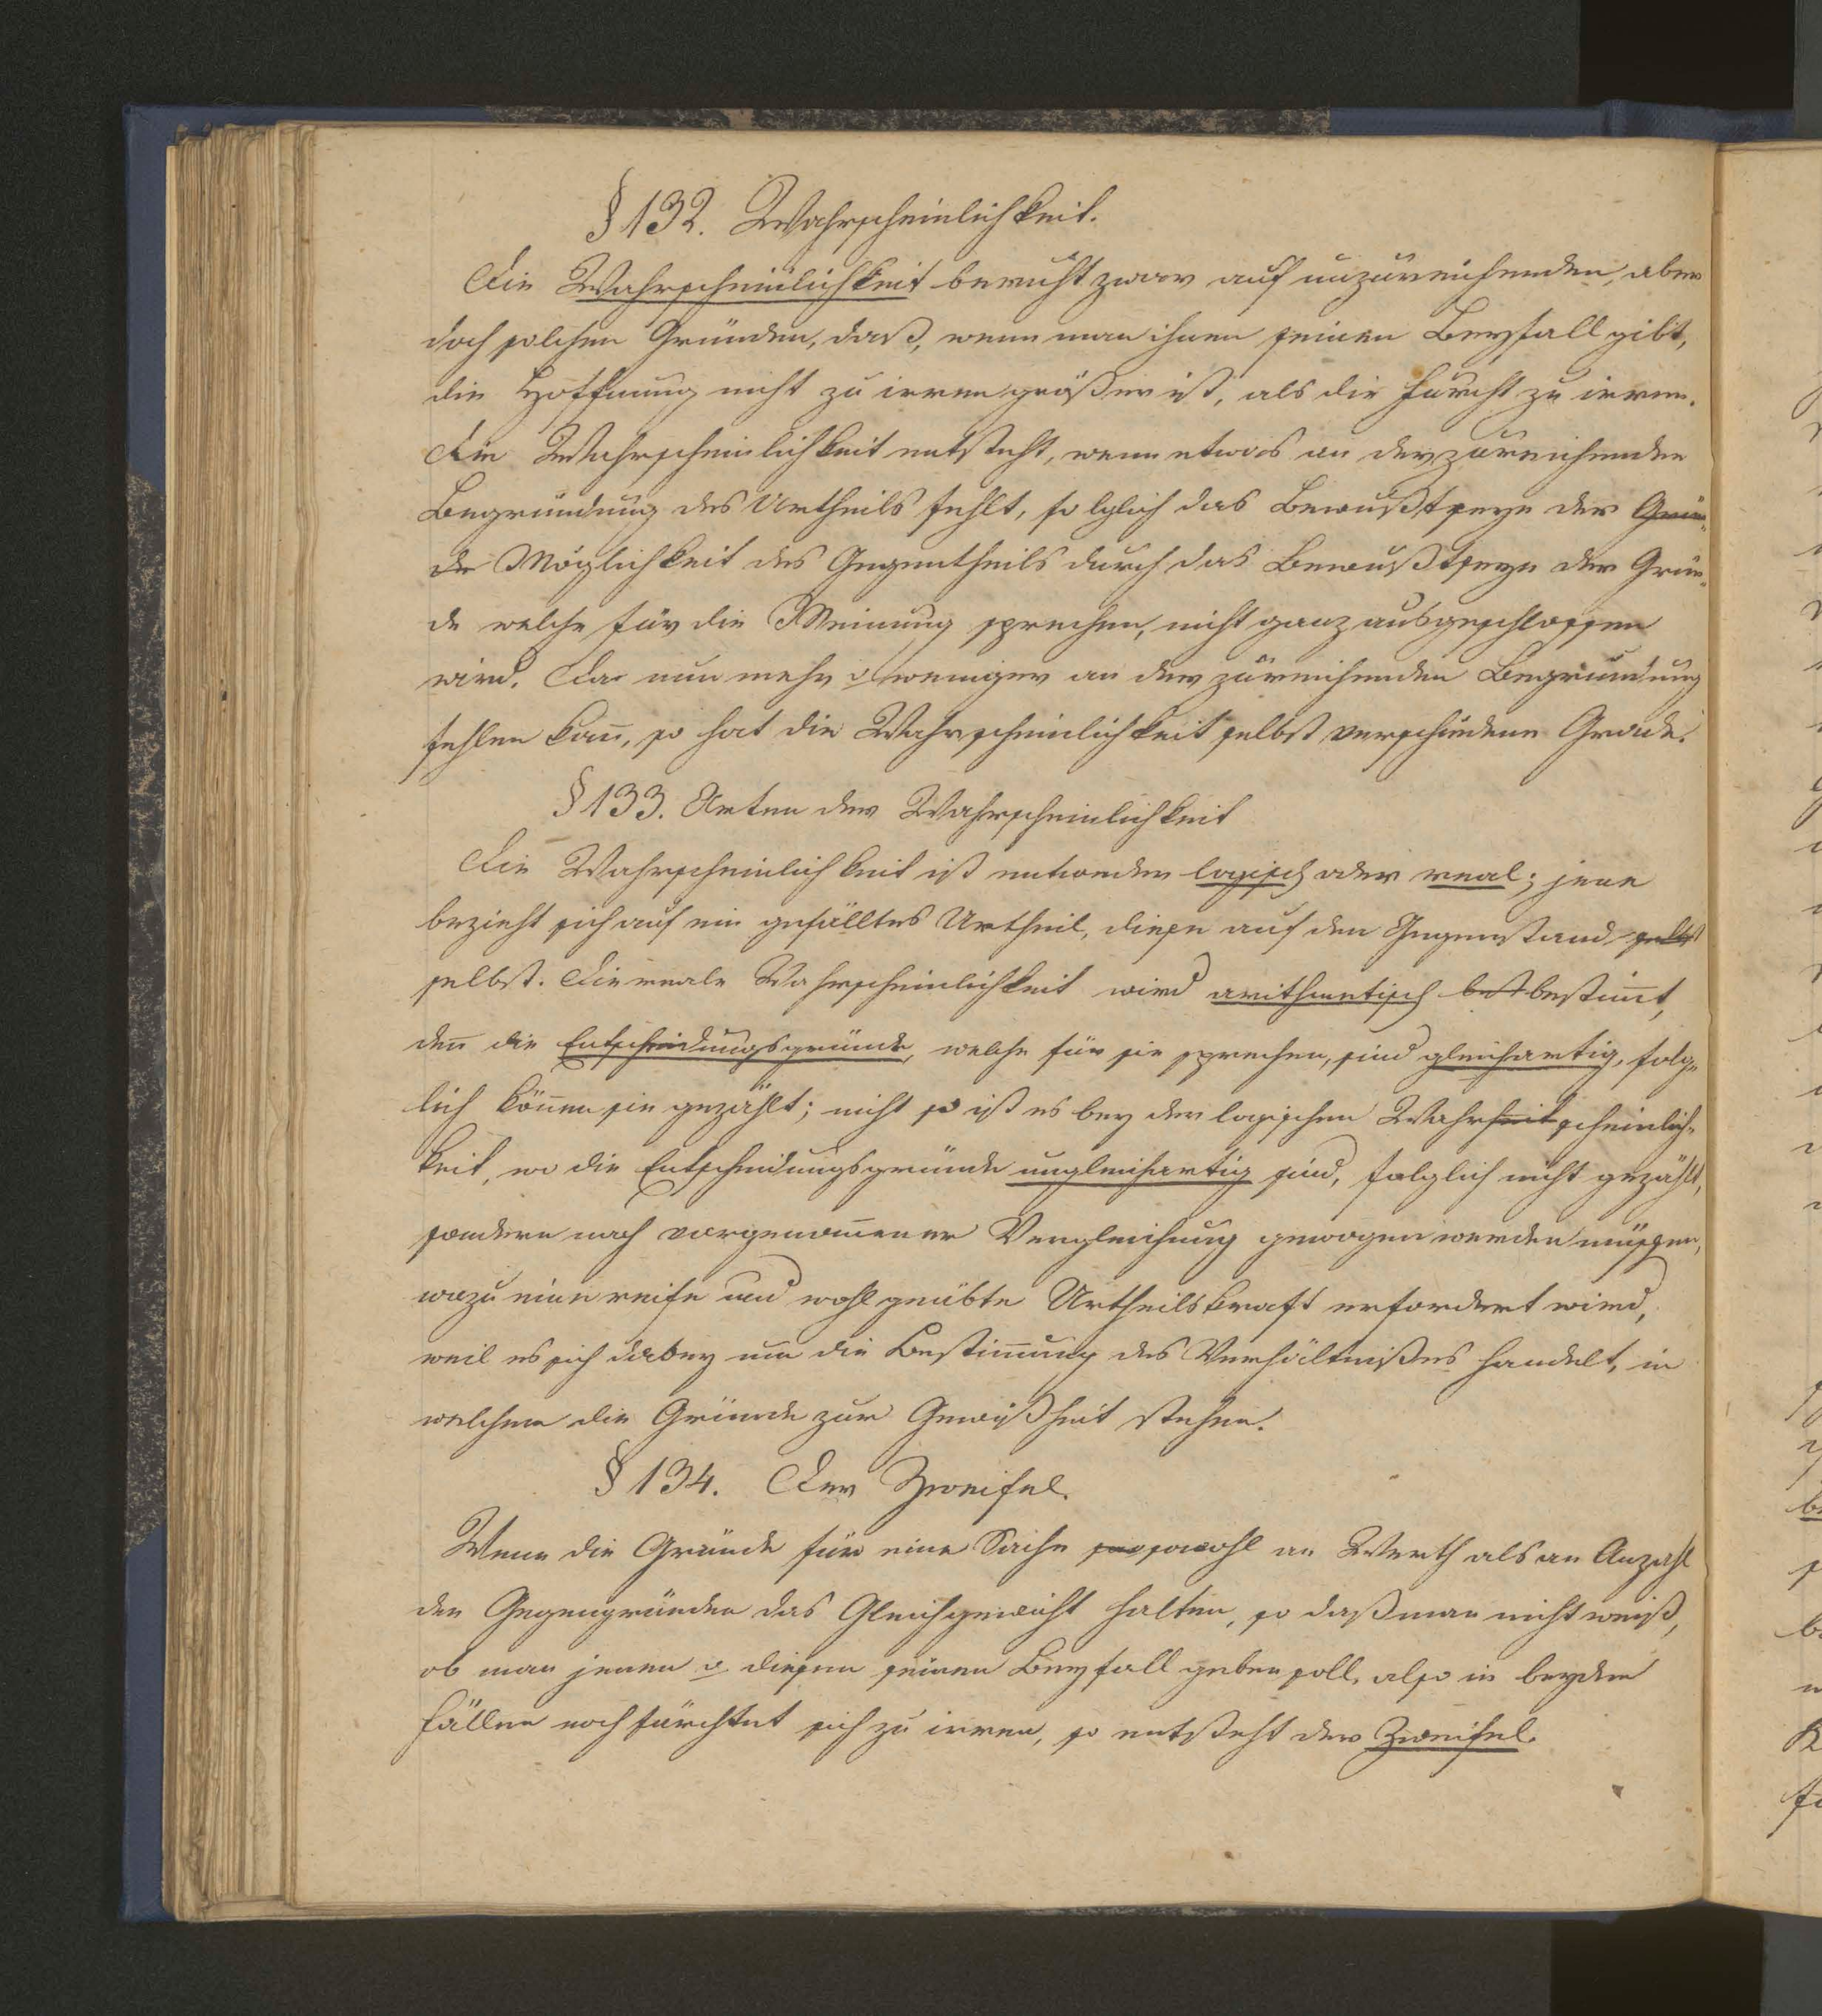 § 132. Wahrscheinlichkeit.
Die Wahrscheinlichkeit beruht zwar auf unzureichenden, aber
doch solchen Gründen, daß, wenn man ihnen seinen Beyfall gibt,
die Hoffnung nicht zu irren größer ist, als die Furcht zu irren.
Die Wahrscheinlichkeit entsteht, wenn etwas an der zureichenden
Begründung des Urtheils fehlt, folglich das Bewußtseyn der Grün-
de Möglichkeit des Gegentheils durch das Bewußtseyn der Grün-
de welche für die Meinung sprechen, nicht ganz ausgeschlossen
wird. Da nun mehr o weniger an der zureichenden Begründung
fehlen kan̅, so hat die Wahrscheinlichkeit selbst verschiedene Grade.
§ 133. Arten der Wahrscheinlichkeit
Die Wahrscheinlichkeit ist entweder logisch oder real; jene
bezieht sich auf ein gefälltes Urtheil, diese auf den Gegenstand selbst
selbst. Die reale Wahrscheinlichkeit wird arithmetisch best bestim̅t,
den̅ die Entscheidungsgründe, welche für sie sprechen, sind gleichartig, folg-
lich kön̅en sie gezählt; nicht so ist es bey der logischen Wahrheit scheinlich-
keit, wo die Entscheidungsgründe ungleichartig sind, folglich nicht gezählt,
sondern nach vorgenom̅ener Vergleichung gewogen werden müssen,
wozu eine reife und wohl geübte Urtheilskraft erfordert wird,
weil es sich dabey um die Bestim̅ung des Verhältnißes handelt, in
welchem die Gründe zur Gewißheit stehen.
§ 134. Der Zweifel.
Wenn die Gründe für eine Sache sowohl an Werth als an Anzahl
den Gegengründen das Gleichgewicht halten, so daß man nicht weiß,
ob man jenen o diesen seinen Beyfall geben soll, also in beyden
Fällen noch fürchtet sich zu irren, so entsteht der Zweifel.